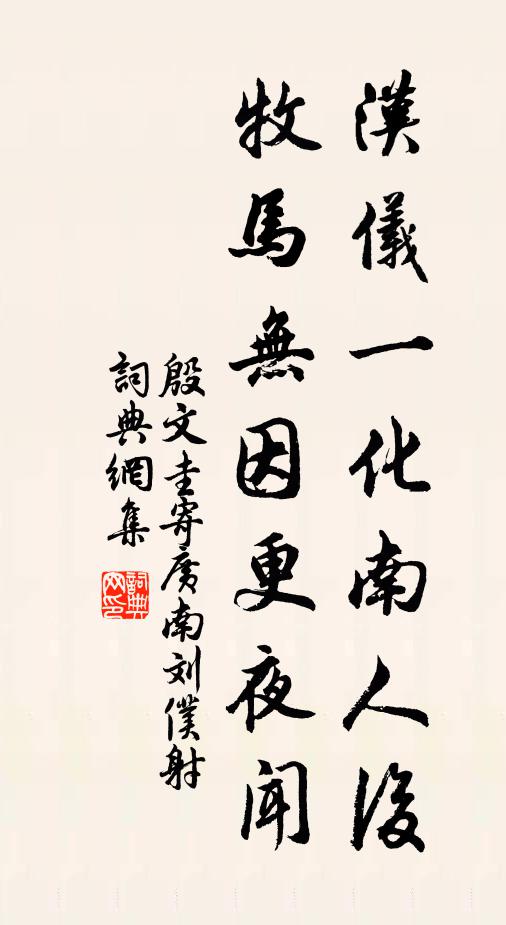 漢儀一化南人後
牧馬無因更夜聞
殷文圭寄廣南刘僕射
詞典網集
詞典網印